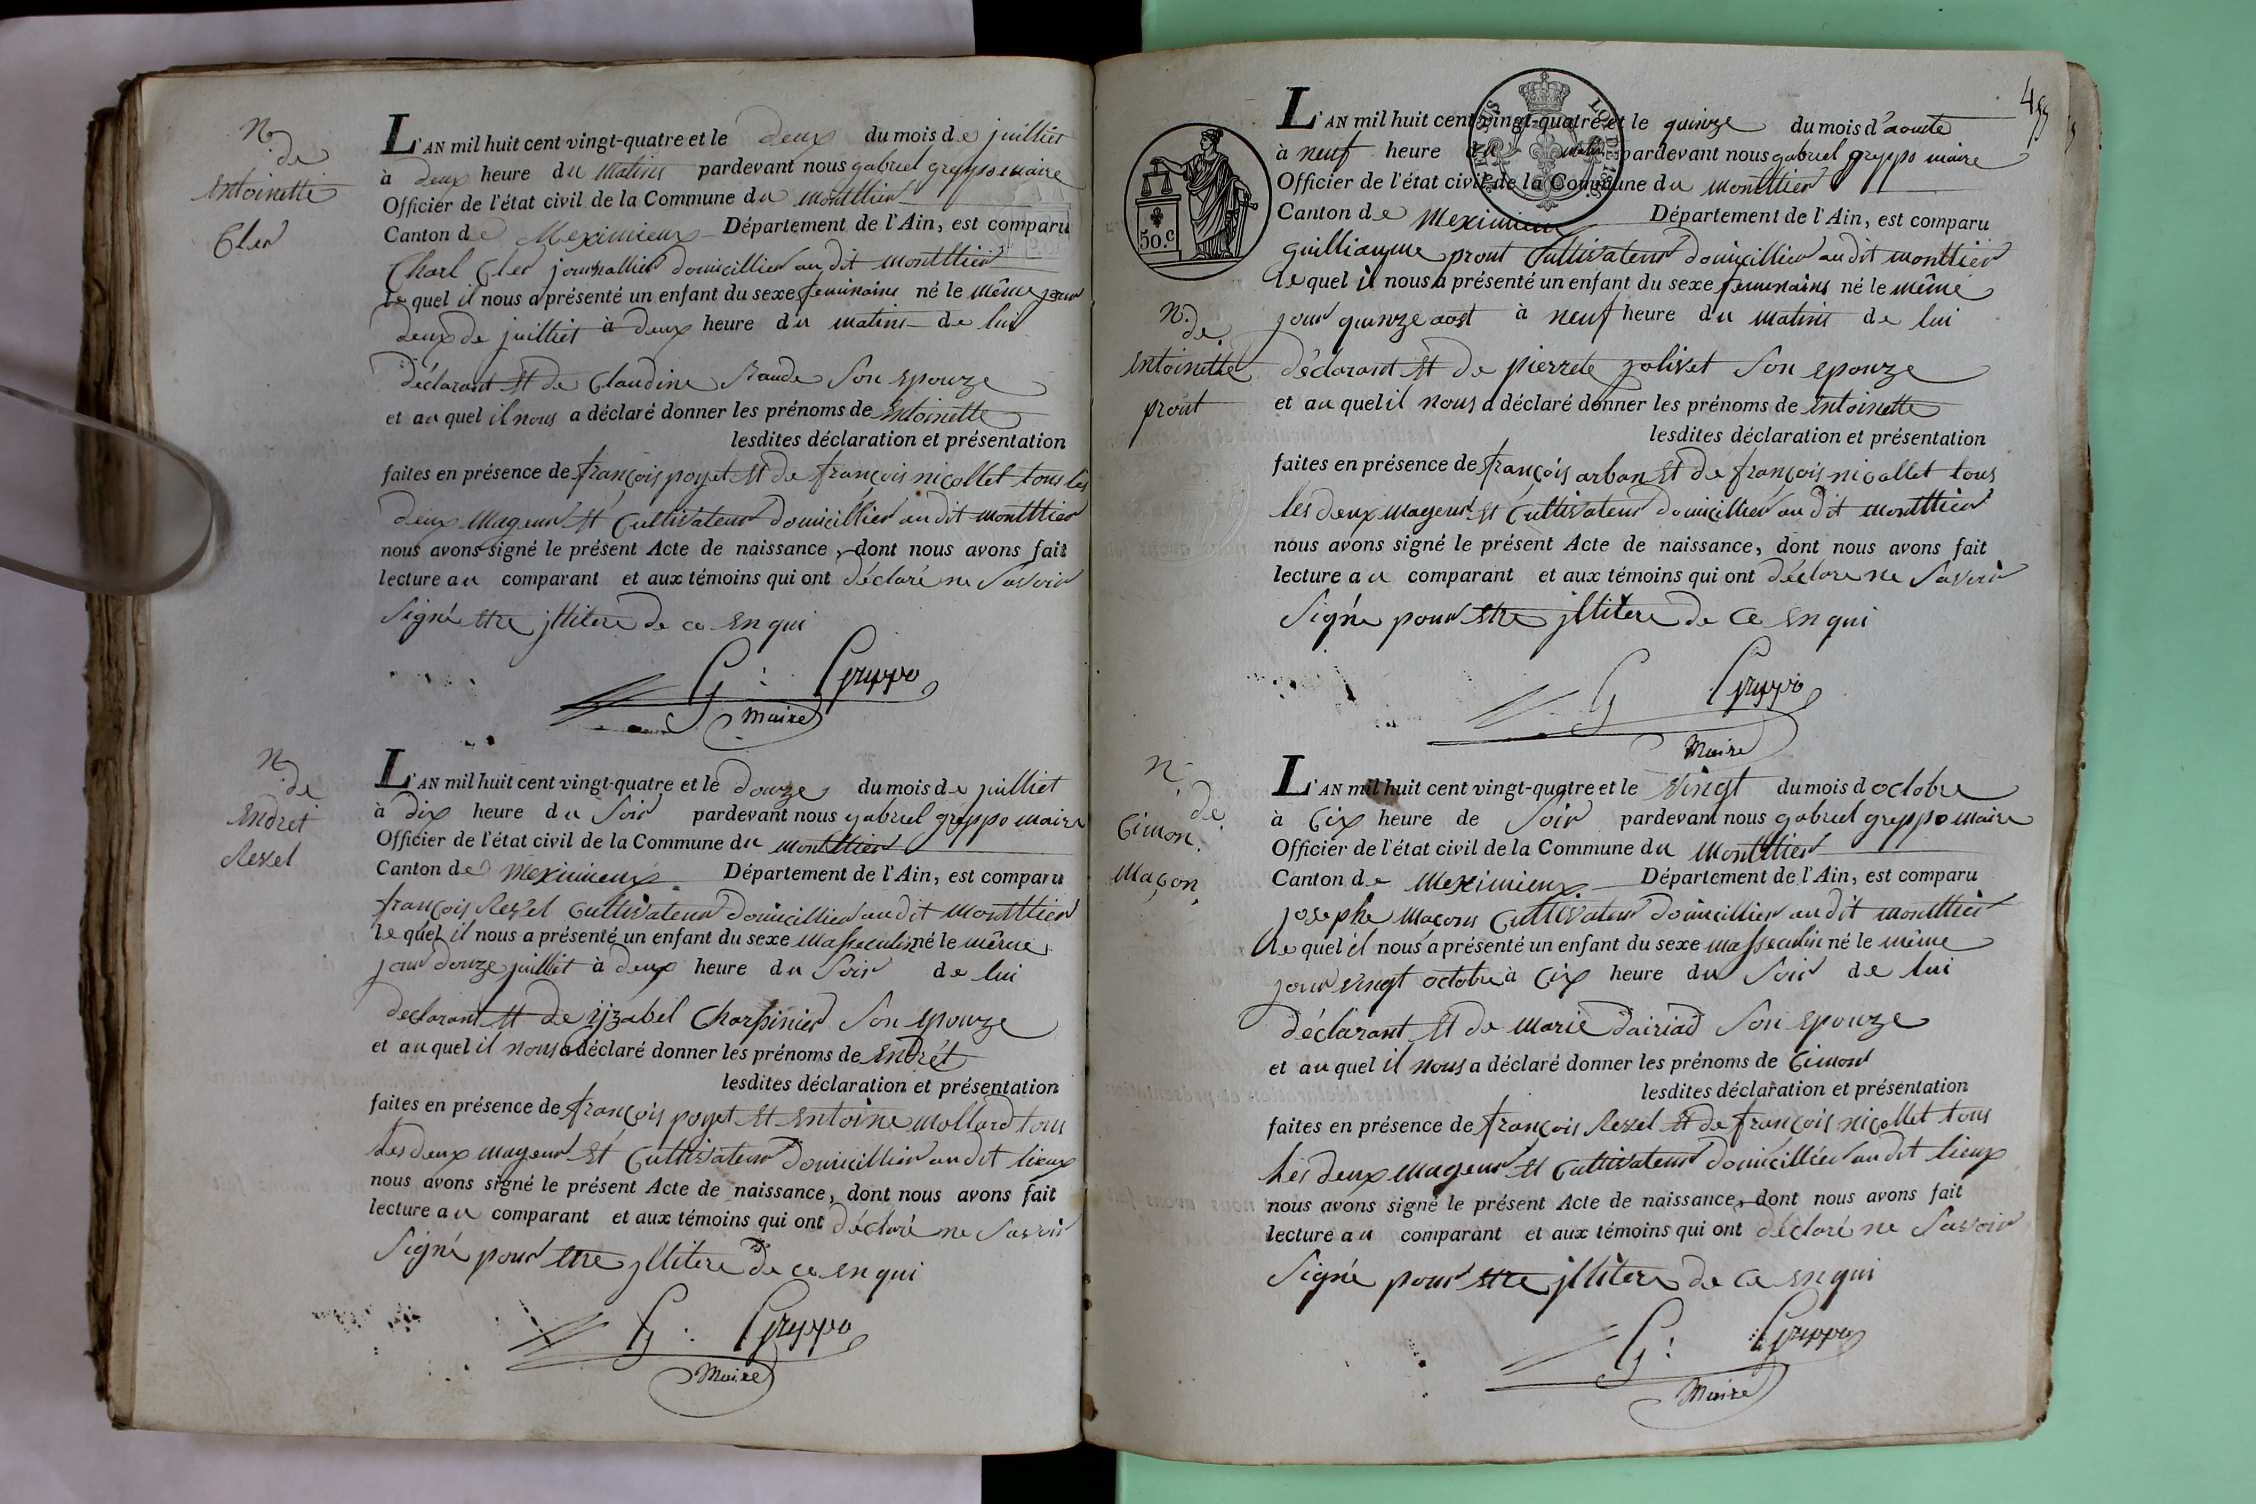 N.
de
entoinette
Cler
L'AN mil huit cent vingt-quatre et le deux du mois de juillier
à deux heure du matins pardevant nous gabriel greppo maire
Officier de l'état civil de la Commune du montllier
Canton de Meximieux Département de l'Ain, est comparu
Charl Cler journallier domicillier au dit montllier
le quel il nous a présenté un enfant du sexe feminains né le même jour
deux de juilliet à deux heure du matins de lui
déclarant et de Claudine son epouze
et au quel il nous a déclaré donner les prénoms de entoinette
lesdites déclaration et présentation
faites en présence de françois poyet et de françois nicollet tous les
deux mageur et Cultivateur domicillier au dit montllier
nous avons signé le présent Acte de naissance, dont nous avons fait
lecture au comparant et aux témoins qui ont déclaré ne savoir
signé etre jllitere de ce en qui
G: Greppo
Maire
N.
de
endret
Revel
L'AN mil huit cent vingt-quatre et le douze du mois de juilliet
à dix heure du soir pardevant nous gabriel greppo maire
Officier de l'état civil de la Commune du montllier
Canton de Meximieux Département de l'Ain, est comparu
françois Revel Cultivateur domicillier au dit montllier
le quel il nous a présenté un enfant du sexe masseculin né le même
jour douze juilliet à deux heure du soir de lui
declarant et de yzabel Charpinier son epouze
et au quel il nous a déclaré donner les prénoms de endrét
lesdites déclaration et présentation
faites en présence de françois poyet et entoine mollard tous
les deux mageur et Cultivateur domicillier au dit lieux
nous avons signé le présent Acte de naissance, dont nous avons fait
lecture au comparant et aux témoins qui ont déclaré ne savoir
signé pour etre jllitere de ce en qui
G: Greppo
Maire
50.c
LOUIS
N.
de
entoinette
prout
L'AN mil huit cent vingt-quatre et le quinze du mois d'aouste
à neuf heure du matin pardevant nous gabriel greppo maire
Officier de l'état civil de la Commune du montllier
Canton de Meximieux Département de l'Ain, est comparu
guilliaume prout Cultivateur domicillier au dit montllier
le quel il nous a présenté un enfant du sexe feminains né le même
jour quinze aost à neuf heure du matins de lui
déclarant et de pierrete jolivet son epouze
et au quel il nous a déclaré donner les prénoms de entoinette
lesdites déclaration et présentation
faites en présence de françois arban et de françois nicollet tous
les deux mageur et Cultivateur domicillier au dit montllier
nous avons signé le présent Acte de naissance, dont nous avons fait
lecture au comparant et aux témoins qui ont déclaré ne savoir
signé pour etre jllitere de ce en qui
G Greppo
Maire
N.
de
Cimon
Maçon
L'AN mil huit cent vingt-quatre et le vingt du mois d octobre
à Cix heure de soir pardevant nous gabriel greppo maire
Officier de l'état civil de la Commune du montllier
Canton de Meximieux Département de l'Ain, est comparu
josephe maçons Cultivateur domicillier au dit montllier
le quel il nous a présenté un enfant du sexe masseculin né le même
jour vingt octobre à Cix heure du soir de lui
déclarant et de marie dairiad son epouze
et au quel il nous a déclaré donner les prénoms de Cimon
lesdites déclaration et présentation
faites en présence de françois Revel et de françois nicollet tous
les deux mageur et Cultivateur domicillier au dit lieux
nous avons signé le présent Acte de naissance, dont nous avons fait
lecture au comparant et aux témoins qui ont déclaré ne savoir
signé pour etre jllitere de ce en qui
G: Greppo
Maire